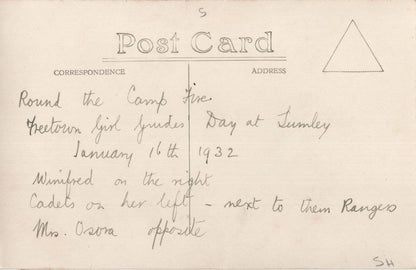 S
Post Card
CORRESPONDENCE ADDRESS
Round the Camp Fire
Freetown Girl Guides Day at Lumley
January 16th 1932
Winifred on the right
Cadets on her left - next to them Rangers
Mrs. Osora opposite
SH